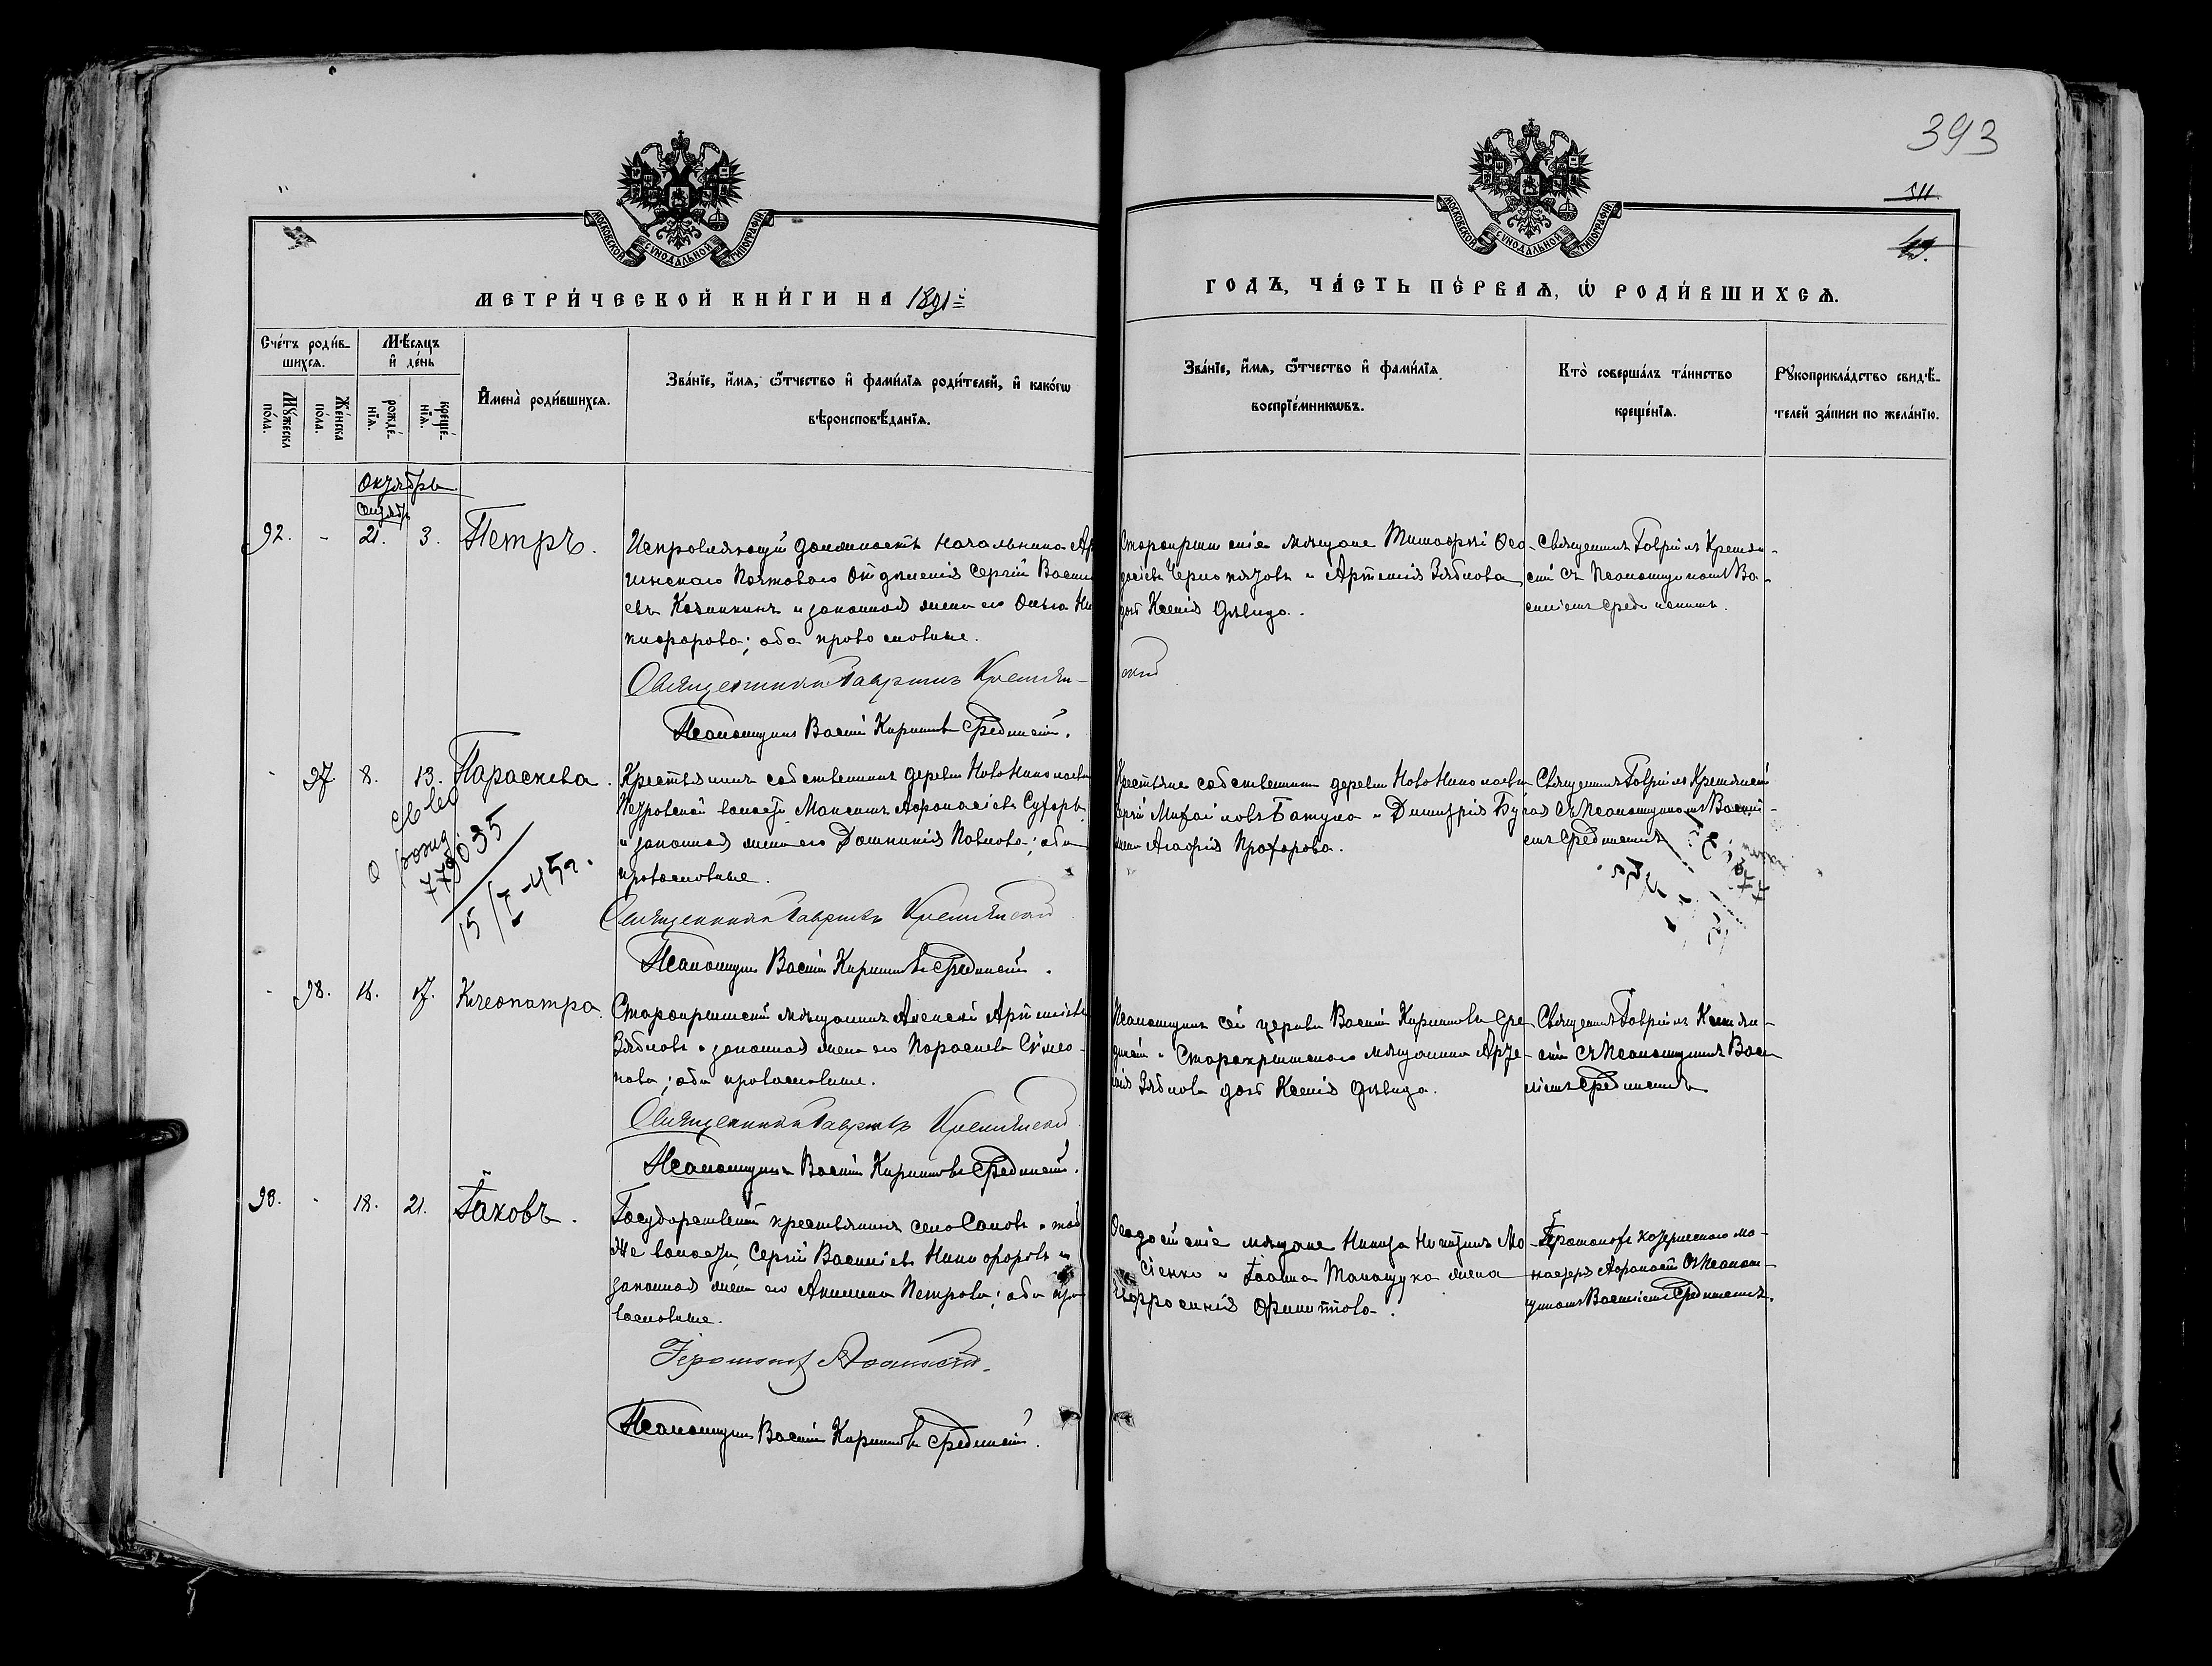 393
511
МОСКОВСКОЙ СѴНОДАЛЬНОЙ ТИПОГРАФІИ
МОСКОВСКОЙ СѴНОДАЛЬНОЙ ТИПОГРАФІИ
МЕТРИ́ЧЕСКОЙ КНИ́ГИ НА 1891й
ГОДЪ, ЧА́СТЬ ПЕ́РВАѦ, Ѡ҆ РОДИ́ВШИХСѦ.
Сче́тъ роди́в-
шихсѧ.
Мꙋ́жеска
по́ла.
Же́нска
по́ла.
Мѣ́сѧцъ
и҆ де́нь
рожде́-
нїѧ.
креще́-
нїѧ.
И҆мена̀ роди́вшихсѧ.
Зва́нїе, и҆́мѧ, ѻ҆́тчество и҆ фами́лїѧ роди́телей, и҆ како́гѡ
вѣроисповѣ́данїѧ.
Зва́нїе, и҆́мѧ, ѻ҆́тчество и҆ фами́лїѧ
воспрїе́мникѡвъ.
Кто̀ соверша́лъ та́инство
креще́нїѧ.
Рꙋкоприкла́дство свидѣ́-
телей за́писи по жела́нїю.
Октябрь
Сентяб.
92. - 21. 3. Петръ.
Исправляющій должность Начальника
Почтоваго Отделенія Сергій Васи
евъ и законная жена его Ольга Ни
кифорова; оба православные.
Священникъ Гавріилъ Кремян-
скій
Псаломщикъ Василій Кирилловъ Срединскій.
Старокрымскіе мѣщане Тимофей Ѳео-
досіевъ и Артемія Зяблова
дочь Ксенія дѣвица.
Священникъ Гавріилъ Кремян-
скій съ Псаломщикомъ Ва-
силіемъ Срединскимъ.
- 97. 8. 13. Параскева.
Крестьянинъ собственникъ деревни НовоНиколаевки
Петровской волости Максимъ Аѳанасіевъ
и законная жена его Домникія Павлова; оба
православные.
Священникъ Гавріилъ Кремянскій
Псаломщикъ Василій Кирилловъ Срединскій.
Крестьяне собственники деревни НовоНиколаевки
Сергій Михаиловъ и Димитрія
жена Агафія Прохорова.
Священникъ Гавріилъ Кремянскій
съ Псаломщикомъ Василі-
емъ Срединскимъ
о рожд.
779035
15/I-45г.
- 98. 16. 17. Клеопатра.
Старокрымскій мѣщанинъ Алексій Артеміевъ
Зябловъ и законная жена его Параскева Симео-
нова; оба православные.
Священникъ Гавріилъ Кремянскій
Псаломщикъ Василій Кирилловъ Срединскій.
Псаломщикъ сей церкви Василій Кирилловъ Сре-
динскій и Старокрымскаго мѣщанина Арте-
мія Зяблова дочь Ксенія дѣвица.
Священникъ Гавріилъ Кремян-
скій съ Псаломщикомъ Васи-
ліемъ Срединскимъ
93. - 18. 21. Іаковъ.
Государственный крестьянинъ села и той
же волости, Сергій Василіевъ Никифоровъ и
законная жена его Акилина Петрова; оба пра
вославные.
Іеромонахъ
Псаломщикъ Василій Кирилловъ Срединскій.
Ѳеодосійскіе мѣщане Никита Никитинъ Мо-
сіенко и Іоанна жена
Евфросинія Филиппова.
Іеромонахъ мо-
настыря съ Псалом-
щикомъ Василіемъ Срединскимъ.